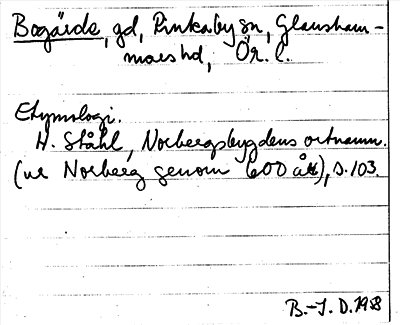 Bogärde, gd, Rinkaby sn, Glansham-
mars hd, Ör. l.
Etymologi.
H. Ståhl, Norbergsbygdens ortnamn.
(ur Norberg genom 600 år), s. 103.
B.-I. D. 1988